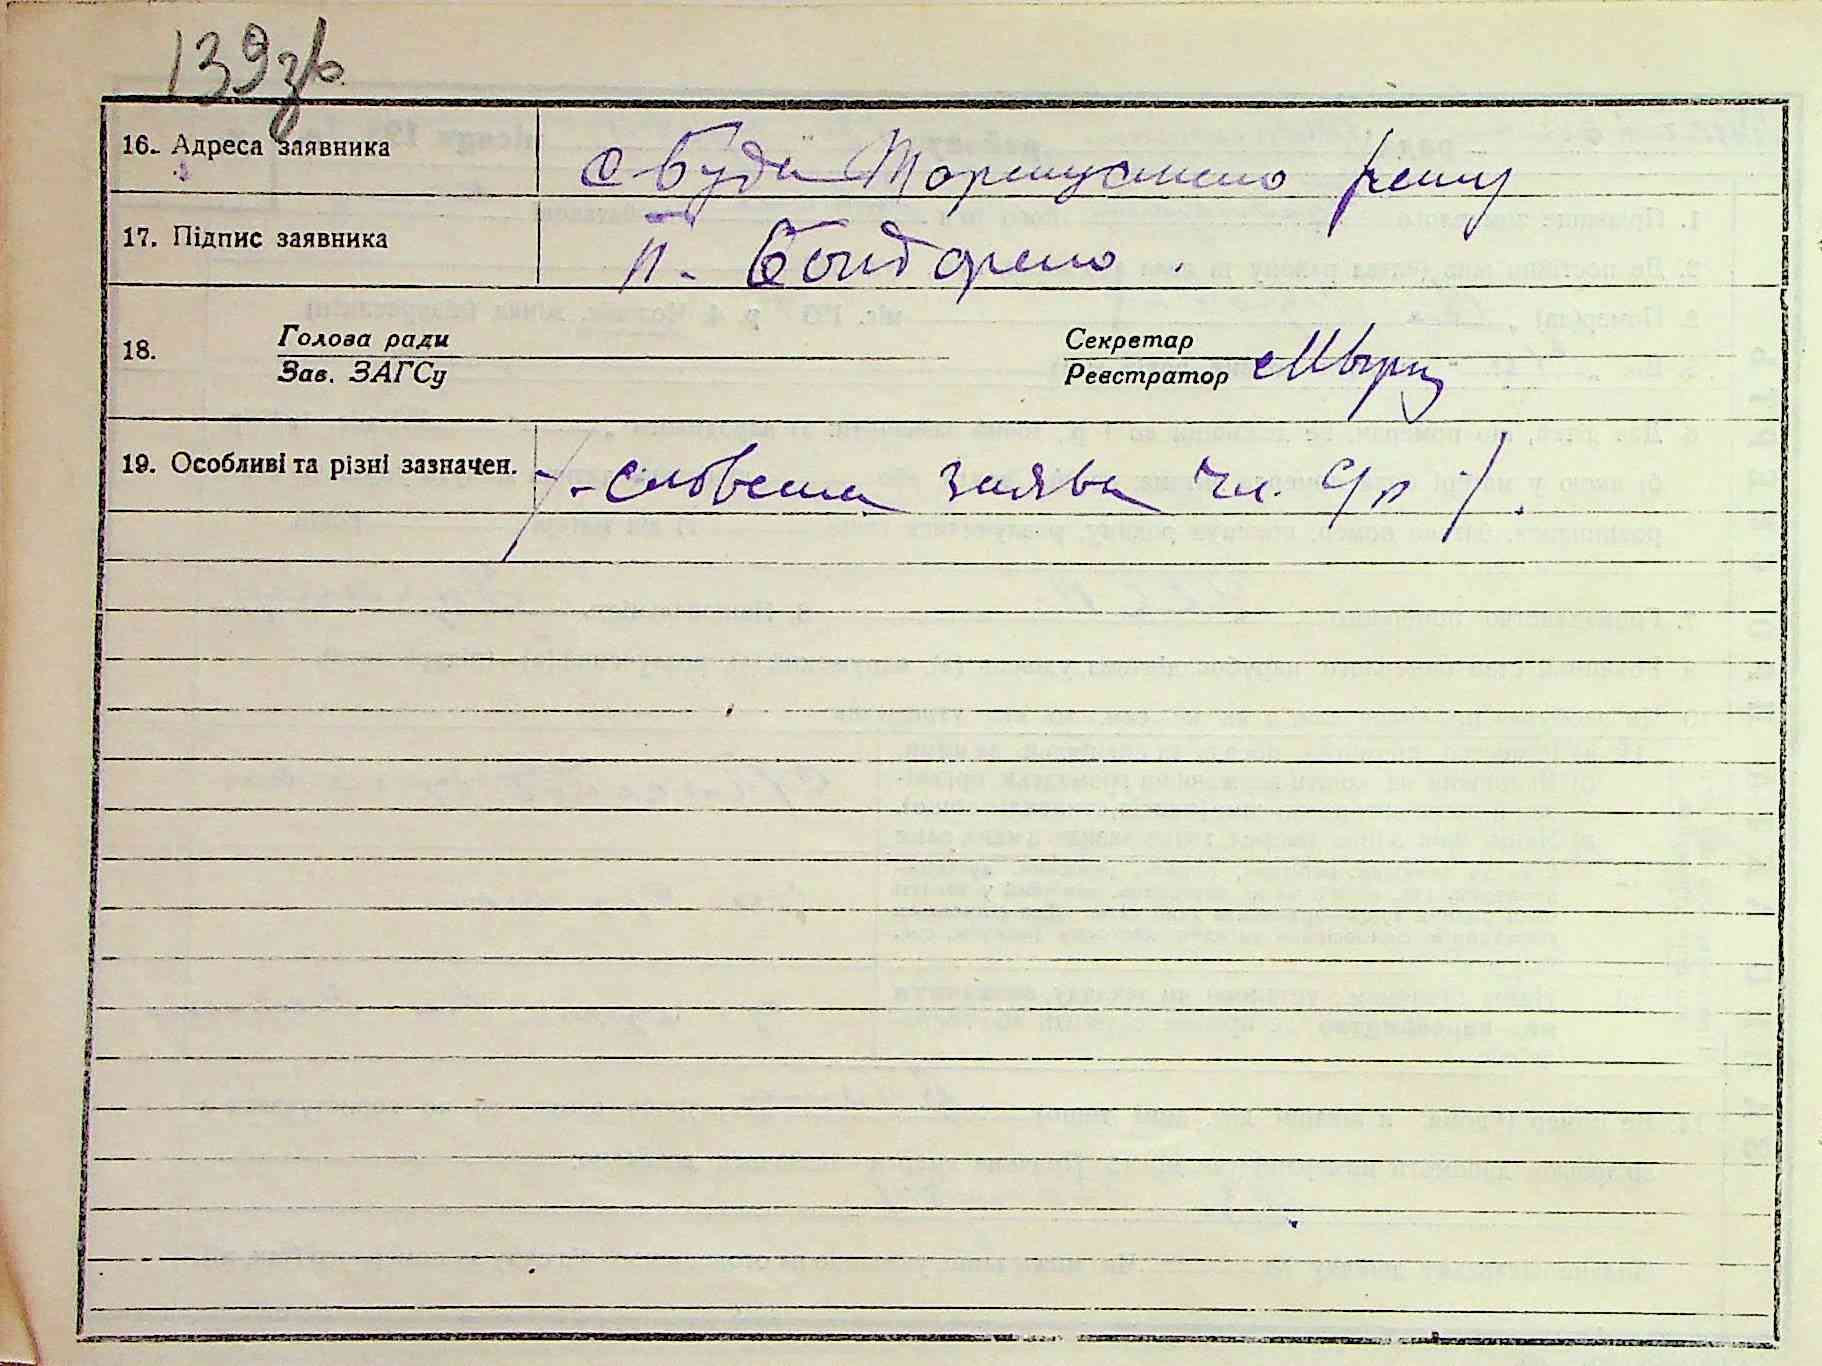 139зв.
16. Адреса заявника с Буди Таращанско рену
17. Підпис заявника п. Бондарено.
18. Голова ради Секретар
Зав. ЗАГСу Реєстратор
19. Особливі та різні зазначен. /-словесна заява чл. с/р-/.